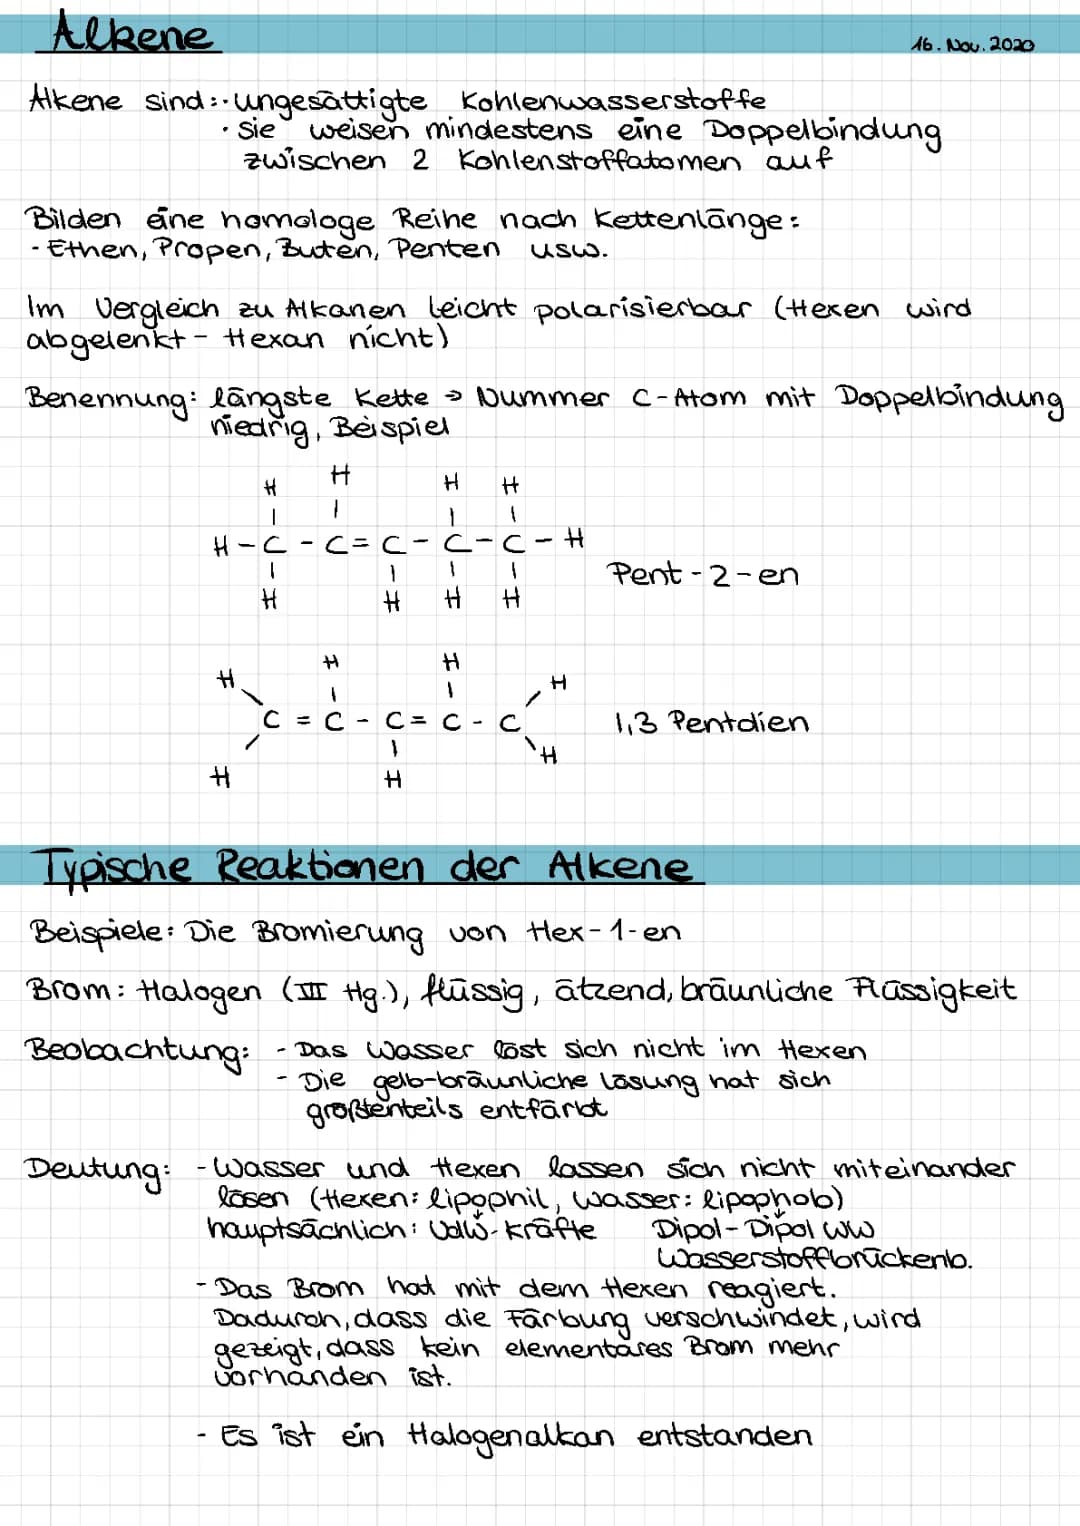 Alkene
16. Nov. 2020
Alkene sind: · ungesättigte Kohlenwasserstoffe
· sie weisen mindestens eine Doppelbindung
zwischen 2 Kohlenstoffatomen auf
Bilden eine homologe Reihe nach Kettenlänge:
- Ethen, Propen, Buten, Penten usw.
Im Vergleich zu Alkanen leicht polarisierbar (Hexen wird
abgelenkt - Hexan nicht)
Benennung: längste Kette → Nummer C-Atom mit Doppelbindung
niedrig, Beispiel
H H H H
H - C - C = C - C - C - H
H H H H
Pent-2-en
H H H H
C = C - C = C - C
H H H
1,3 Pentdien
Typische Reaktionen der Alkene
Beispiele: Die Bromierung von Hex-1-en
Brom: Halogen (III Hg.), flüssig, ätzend, bräunliche Flüssigkeit
Beobachtung: - Das Wasser löst sich nicht im Hexen
- Die gelb-bräunliche Lösung hat sich
größtenteils entfärbt
Deutung: - Wasser und Hexen lassen sich nicht miteinander
lösen (Hexen: lipophil, Wasser: lipophob)
hauptsächlich: VdW-Kräfte Dipol-Dipol WW
Wasserstoffbrückenb.
- Das Brom hat mit dem Hexen reagiert.
Dadurch, dass die Färbung verschwindet, wird
gezeigt, dass kein elementares Brom mehr
vorhanden ist.
- Es ist ein Halogenalkan entstanden